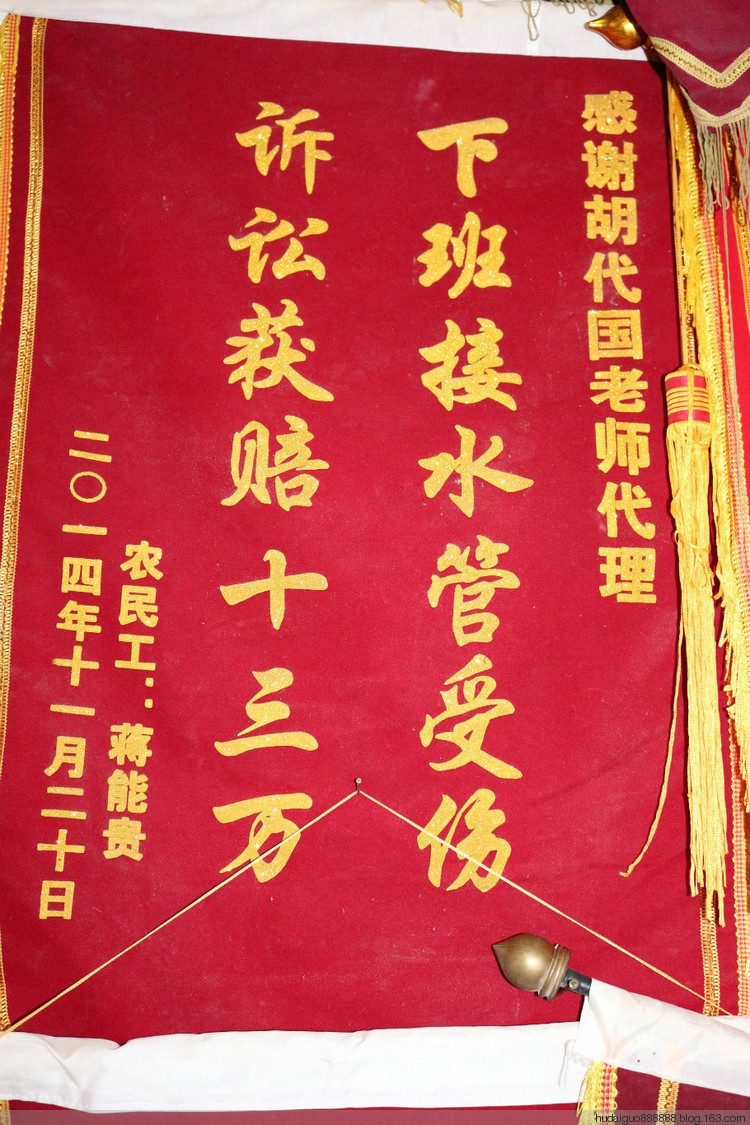 感谢胡代国老师代理
下班接水管受伤
诉讼获赔十三万
农民工：蒋能贵
二〇一四年十一月二十日
hudaiguo888888.blog.163.com